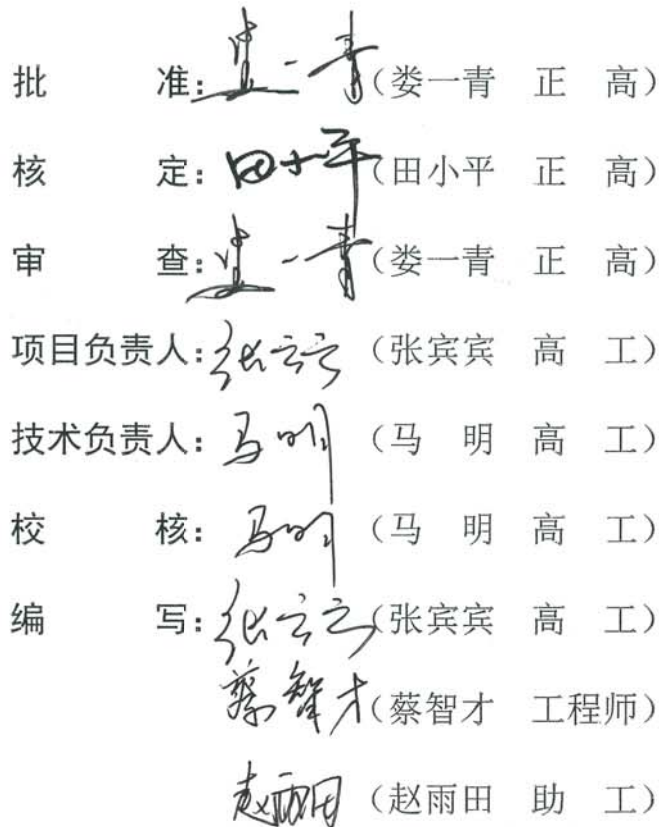 批 准：娄一青（娄一青 正 高）
核 定：田小平（田小平 正 高）
审 查：娄一青（娄一青 正 高）
项目负责人：张宾宾（张宾宾 高 工）
技术负责人：马明（马 明 高 工）
校 核：马明（马 明 高 工）
编 写：张宾宾（张宾宾 高 工）
蔡智才（蔡智才 工程师）
赵雨田（赵雨田 助 工）